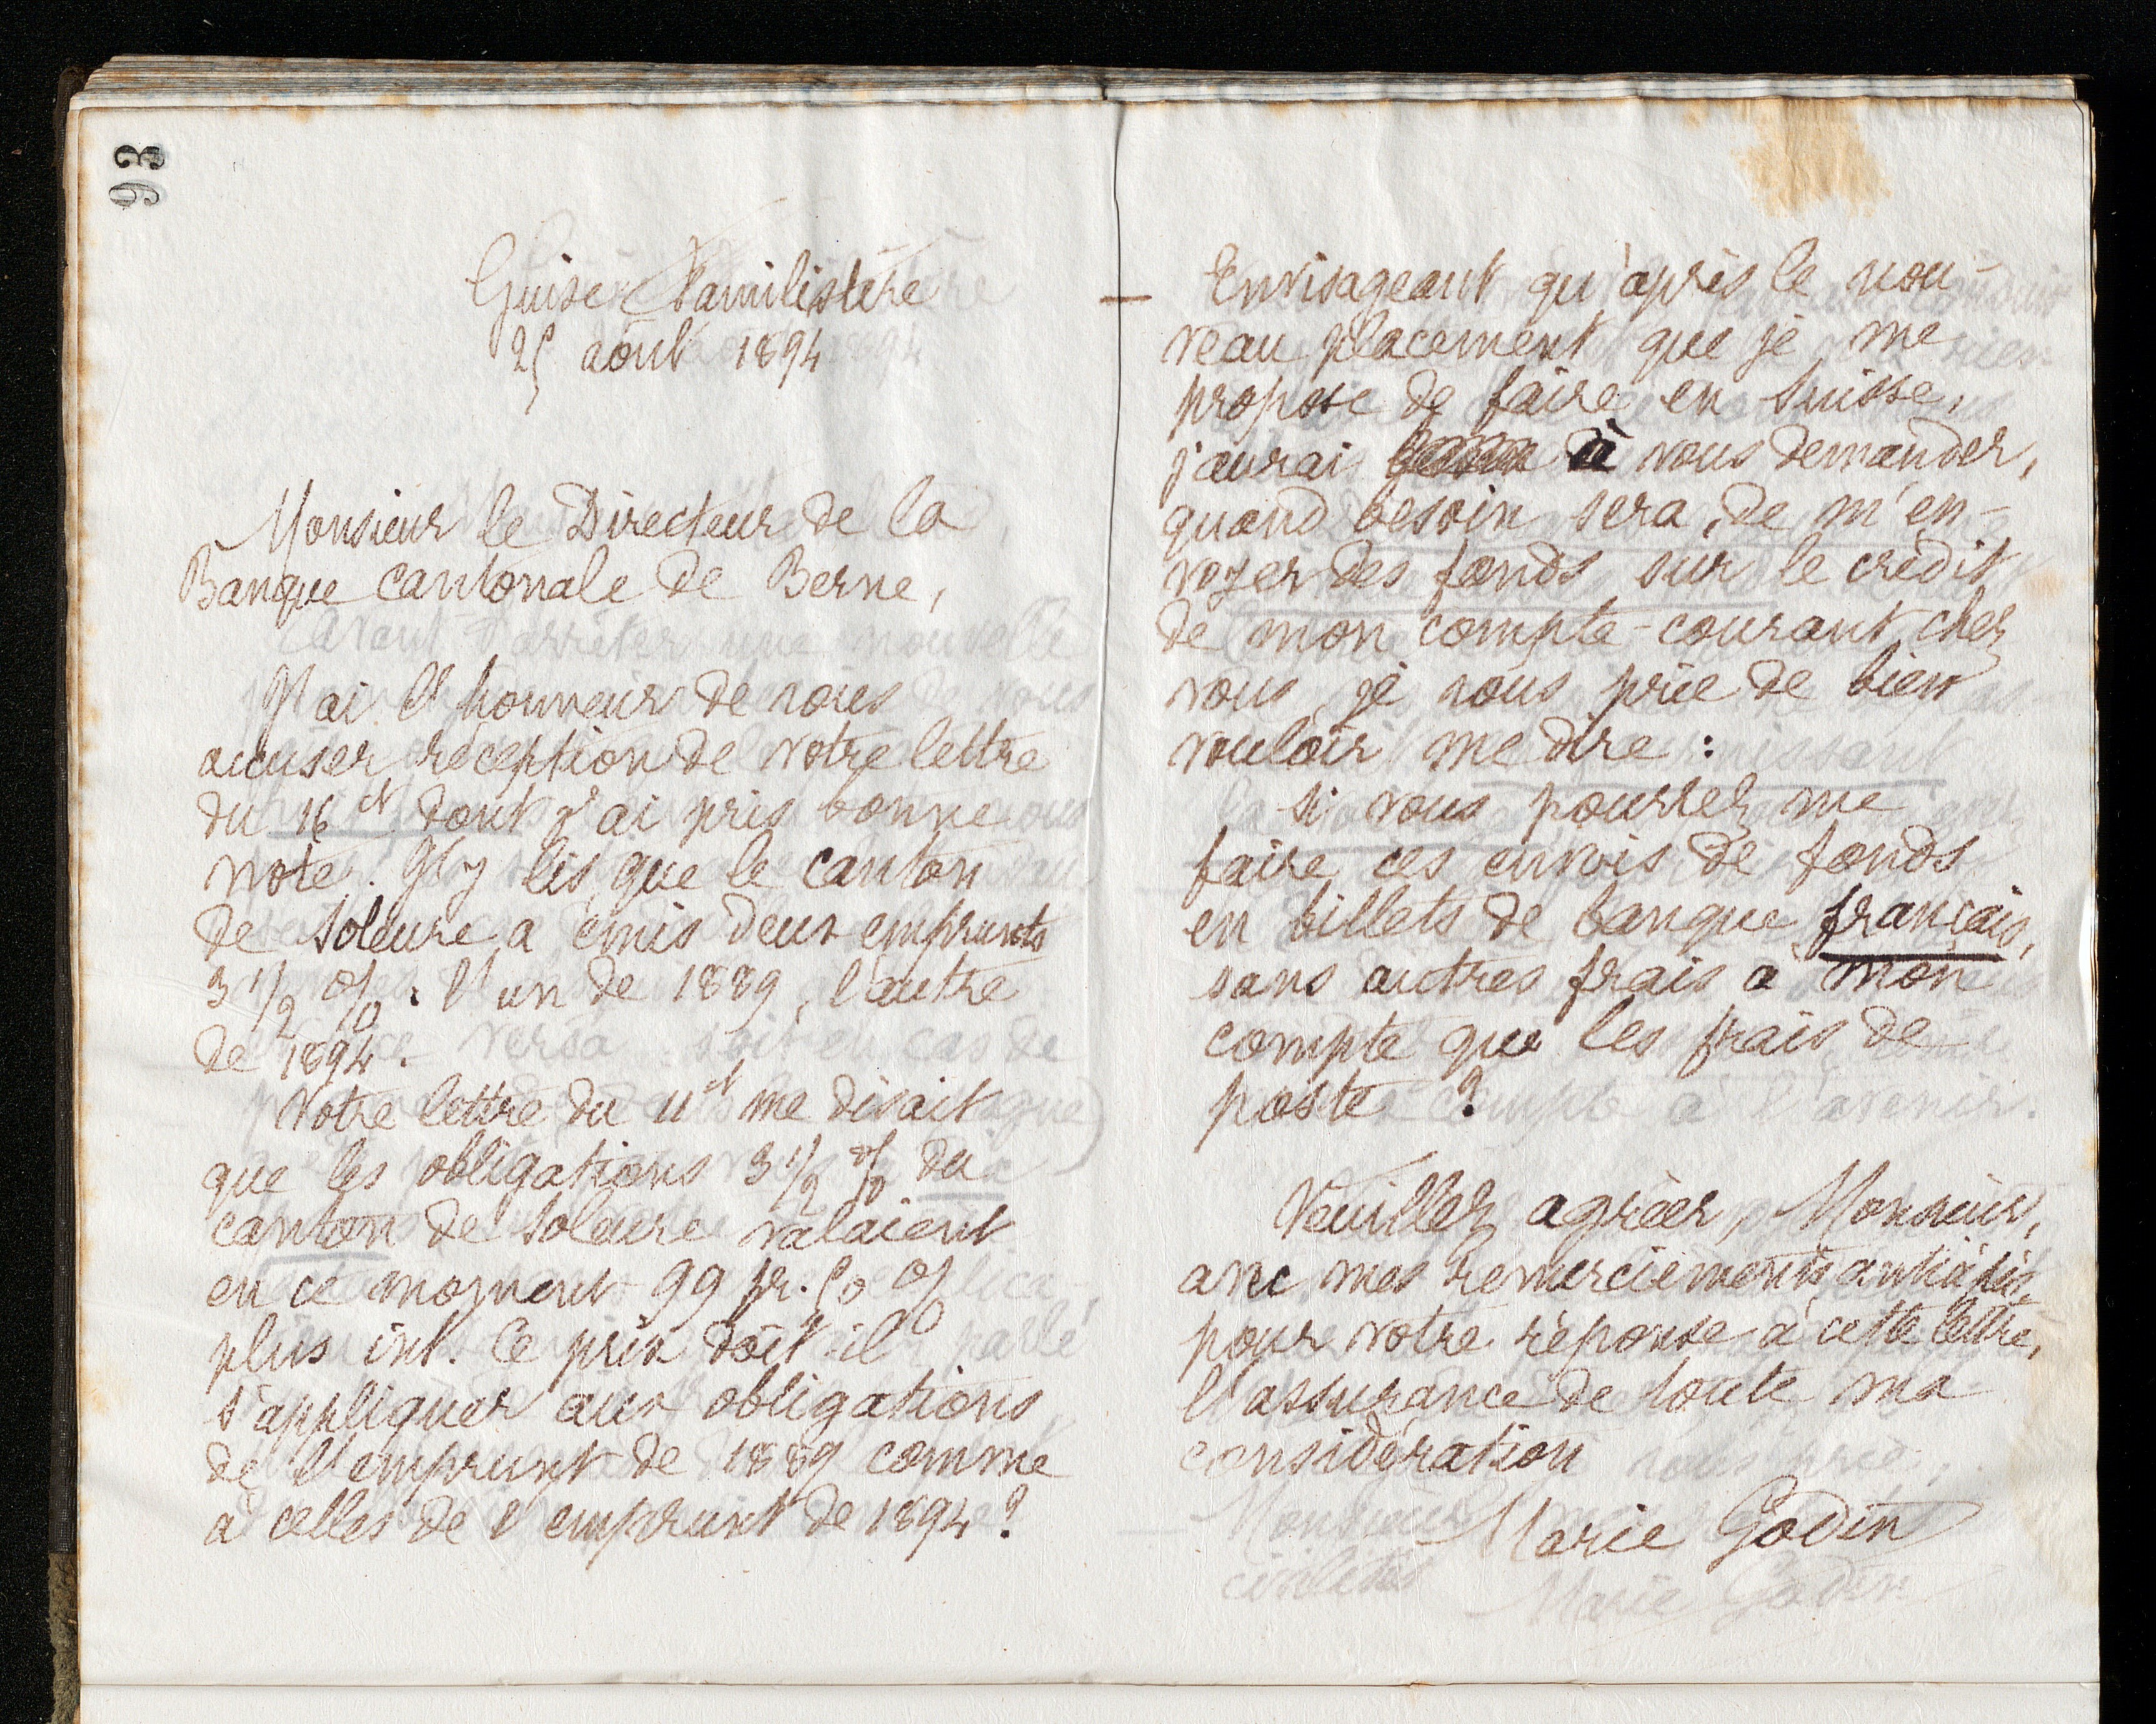 93
Guise Familistère
25 août 1894
Monsieur le Directeur de la
Banque cantonale de Berne,
J'ai l'honneur de vous
accuser réception de votre lettre
du 16 ct dont j'ai pris bonne
note. J'y lis que le canton
de Soleure a émis deux emprunts
3 1/2 %: l'un de 1889, l'autre
de 1894.
Votre lettre du 11 ct me disait
que les obligations 3 1/2 % du
canton de Soleure valaient
en ce moment 99 fr. 50 %
plus int. Ce prix doit-il
s'appliquer aux obligations
de l'emprunt de 1889 comme
à celles de l'emprunt de 1894?
— Envisageant qu'après le nou-
veau placement que je me
propose de faire en Suisse,
j'aurai à vous demander,
quand besoin sera, de m'en-
voyer des fonds sur le crédit
de mon compte-courant chez
vous, je vous prie de bien
vouloir me dire :
si vous pourrez me
faire ces envois de fonds
en billets de banque français,
sans autres frais a mon
compte que les frais de
poste ?
Veuillez agréer, Monsieur,
avec mes remerciements anticipés
pour votre réponse à cette lettre,
l'assurance de toute ma
considération
Marie Godin